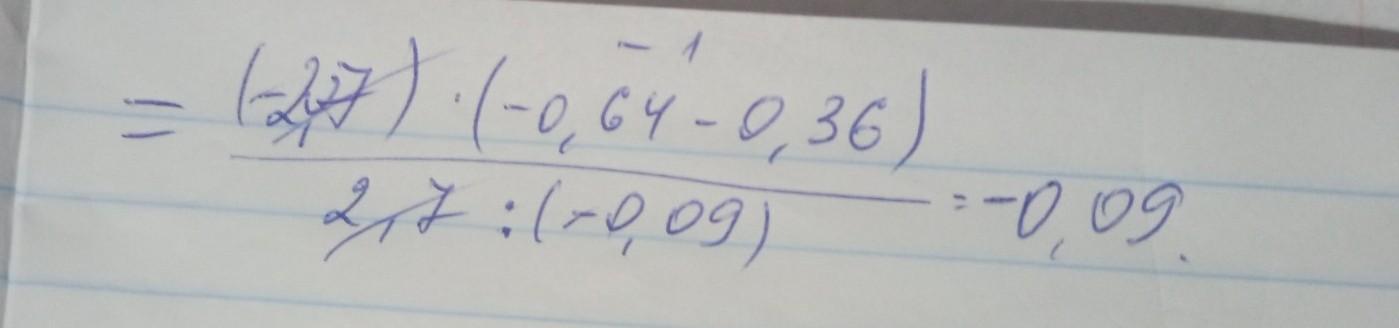 - 1
= (-2,7) · (-0,64 - 0,36)
2,7 : (-0,09) = -0,09.